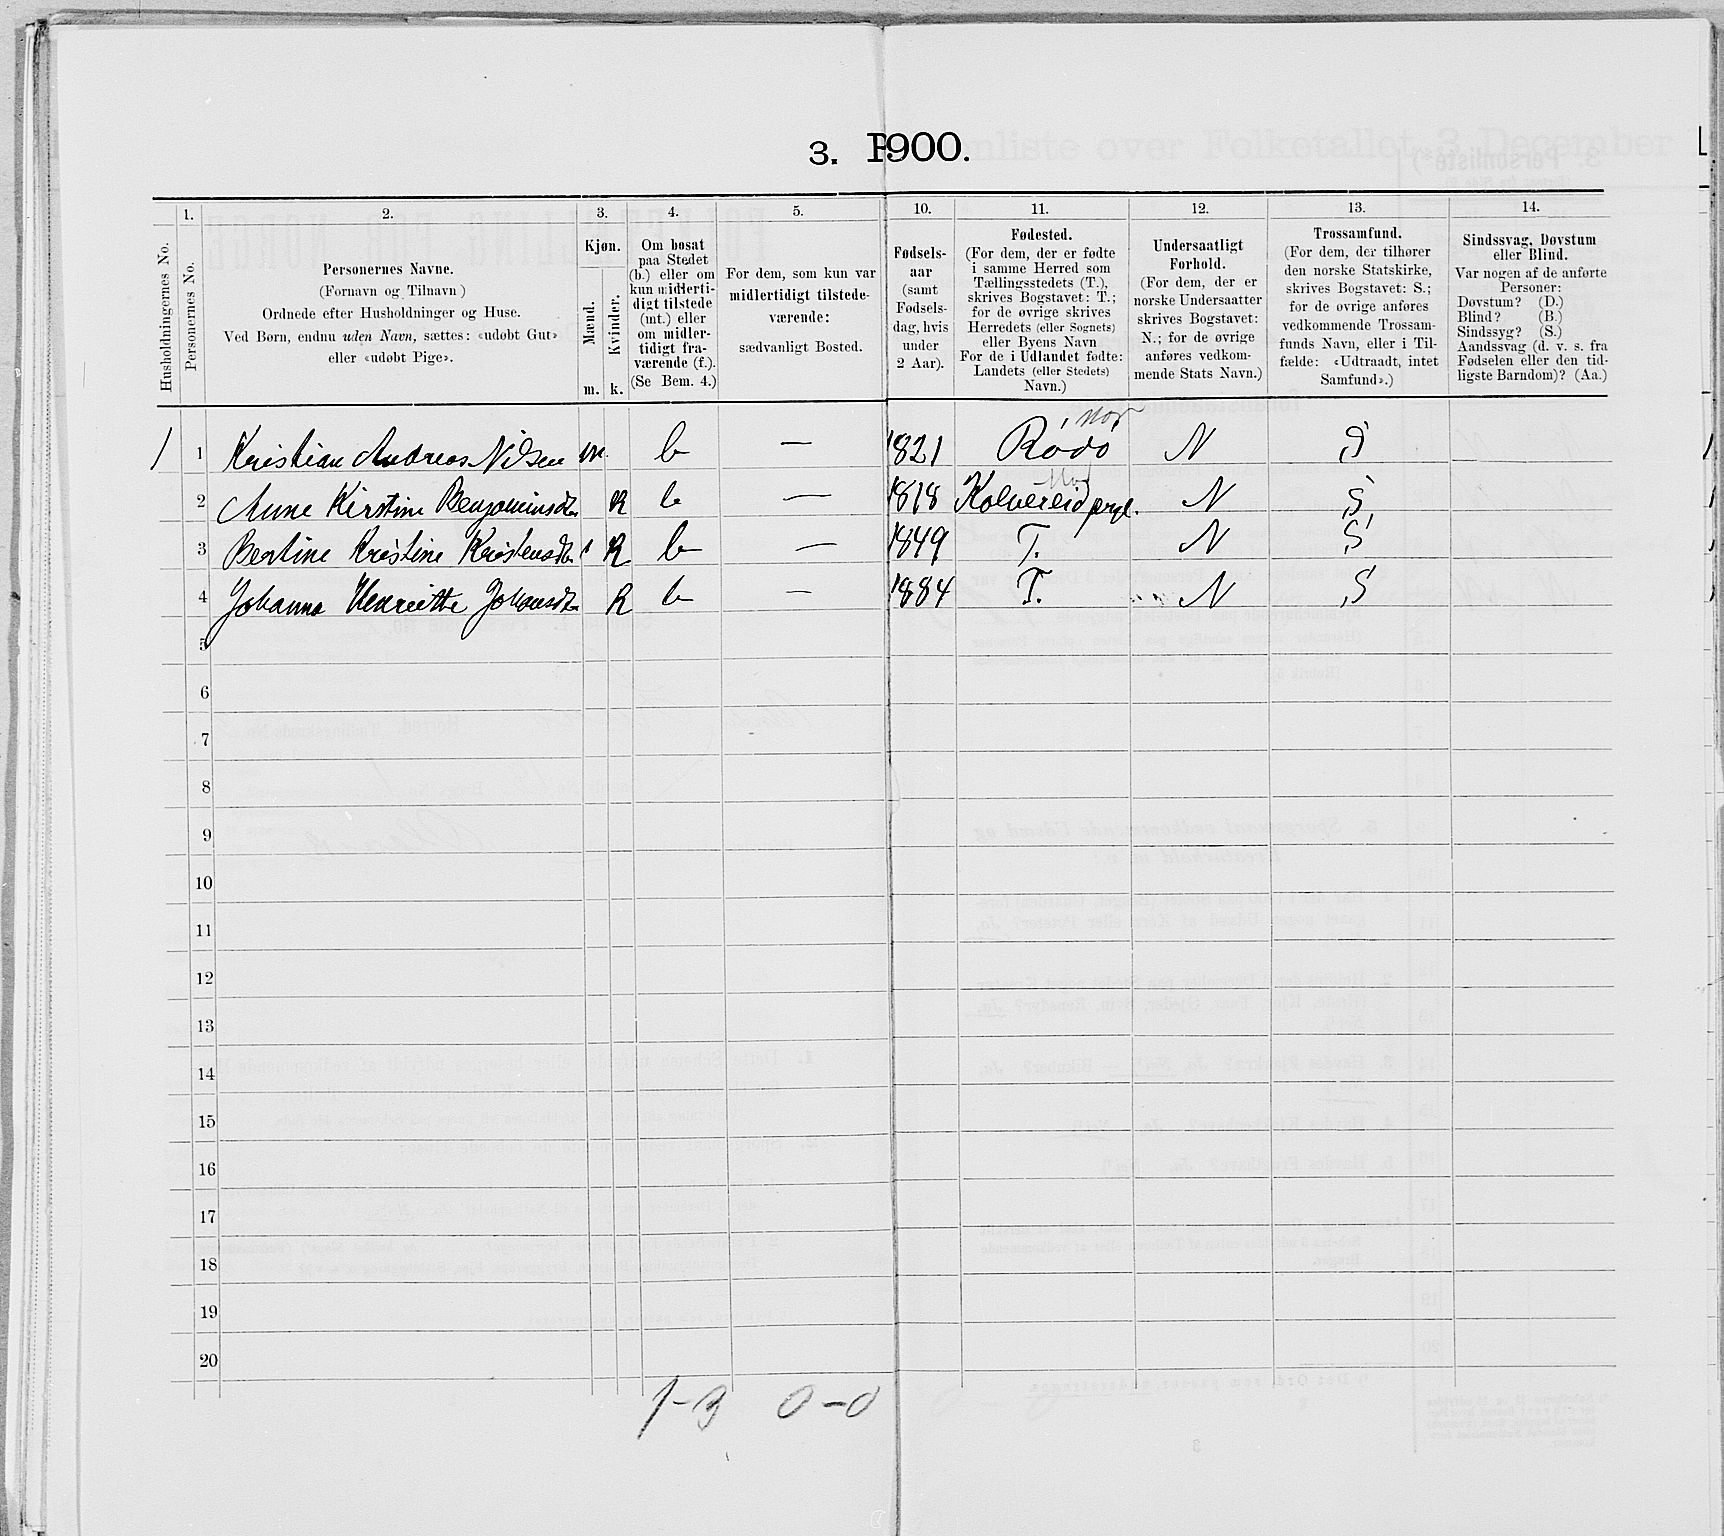 3. P1900.
1. 2. 3. 4. 5. 10. 11. 12. 13. 14.
Husholdningernes No.
Personernes No.
Personernes Navne.
(Fornavn og Tilnavn)
Ordnede efter Husholdninger og Huse.
Ved Børn, endnu uden Navn, sættes: «udøbt Gut»
eller «udøbt Pige».
Kjøn.
Mænd.
Kvinder.
m. k.
Om bosat
paa Stedet
(b.) eller om
kun midlerti-
digt tilstede
(mt.) eller
om midler-
tidigt fra-
værende (f.).
(Se Bem. 4.)
For dem, som kun var
midlertidigt tilstede-
værende:
sædvanligt Bosted.
Fødsels-
aar
(samt
Fødsels-
dag, hvis
under
2 Aar).
Fødested.
(For dem, der er fødte
i samme Herred som
Tællingsstedets (T.),
skrives Bogstavet: T.;
for de øvrige skrives
Herredets (eller Sognets)
eller Byens Navn
For de i Udlandet fødte:
Landets (eller Stedets)
Navn.)
Undersaatligt
Forhold.
(For dem, der er
norske Undersaatter
skrives Bogstavet:
N.; for de øvrige
anføres vedkom-
mende Stats Navn.)
Trossamfund.
(For dem, der tilhører
den norske Statskirke,
skrives Bogstavet: S.;
for de øvrige anføres
vedkommende Trossam-
funds Navn, eller i Til-
fælde: «Udtraadt, intet
Samfund».)
Sindssvag, Døvstum
eller Blind.
Var nogen af de anførte
Personer:
Døvstum? (D.)
Blind? (B.)
Sindssyg? (S.)
Aandssvag (d. v. s. fra
Fødselen eller den tid-
ligste Barndom)? (Aa.)
1 1 Kristian Andreas Nilsen m b — 1821 Rødø N S
2 Anne Kirstine Benjaminsdtr k b — 1818 Kolvereid prgl. N S
3 Bertine Kristine Kristensdtr k b — 1849 T. N S
4 Johanna Henriette Johansdtr k b — 1884 T. N S
5
6
7
8
9
10
11
12
13
14
15
16
17
18
19
20
1-3 0-0